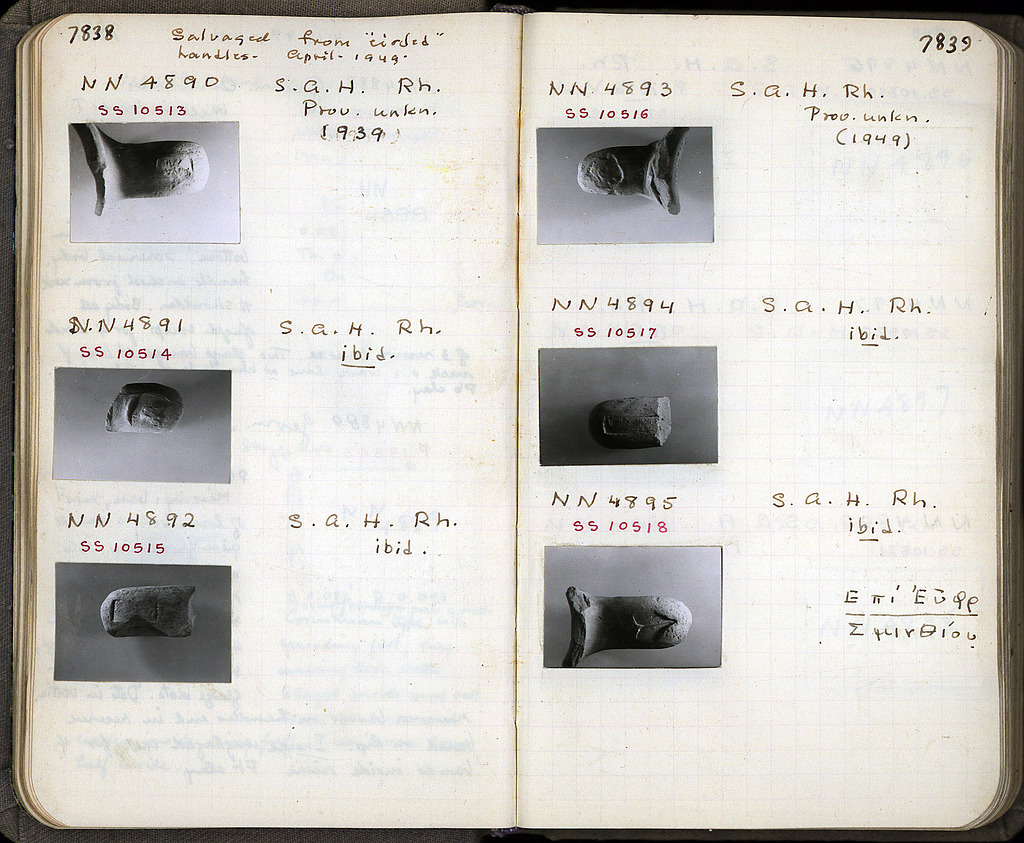 7838
Salvaged from "cirded"
handles. April 1949.
NN 4890 S.A.H. Rh.
SS 10513 Prov. unkn.
(1939)
NN 4891 S.A.H. Rh.
SS 10514 ibid.
NN 4892 S.A.H. Rh.
SS 10515 ibid.
7839
NN 4893 S.A.H. Rh.
SS 10516 Prov. unkn.
(1949)
NN 4894 S.A.H. Rh.
SS 10517 ibid.
NN 4895 S.A.H. Rh.
SS 10518 ibid.
Ἐπί Εὐφρ
Σμινθίου